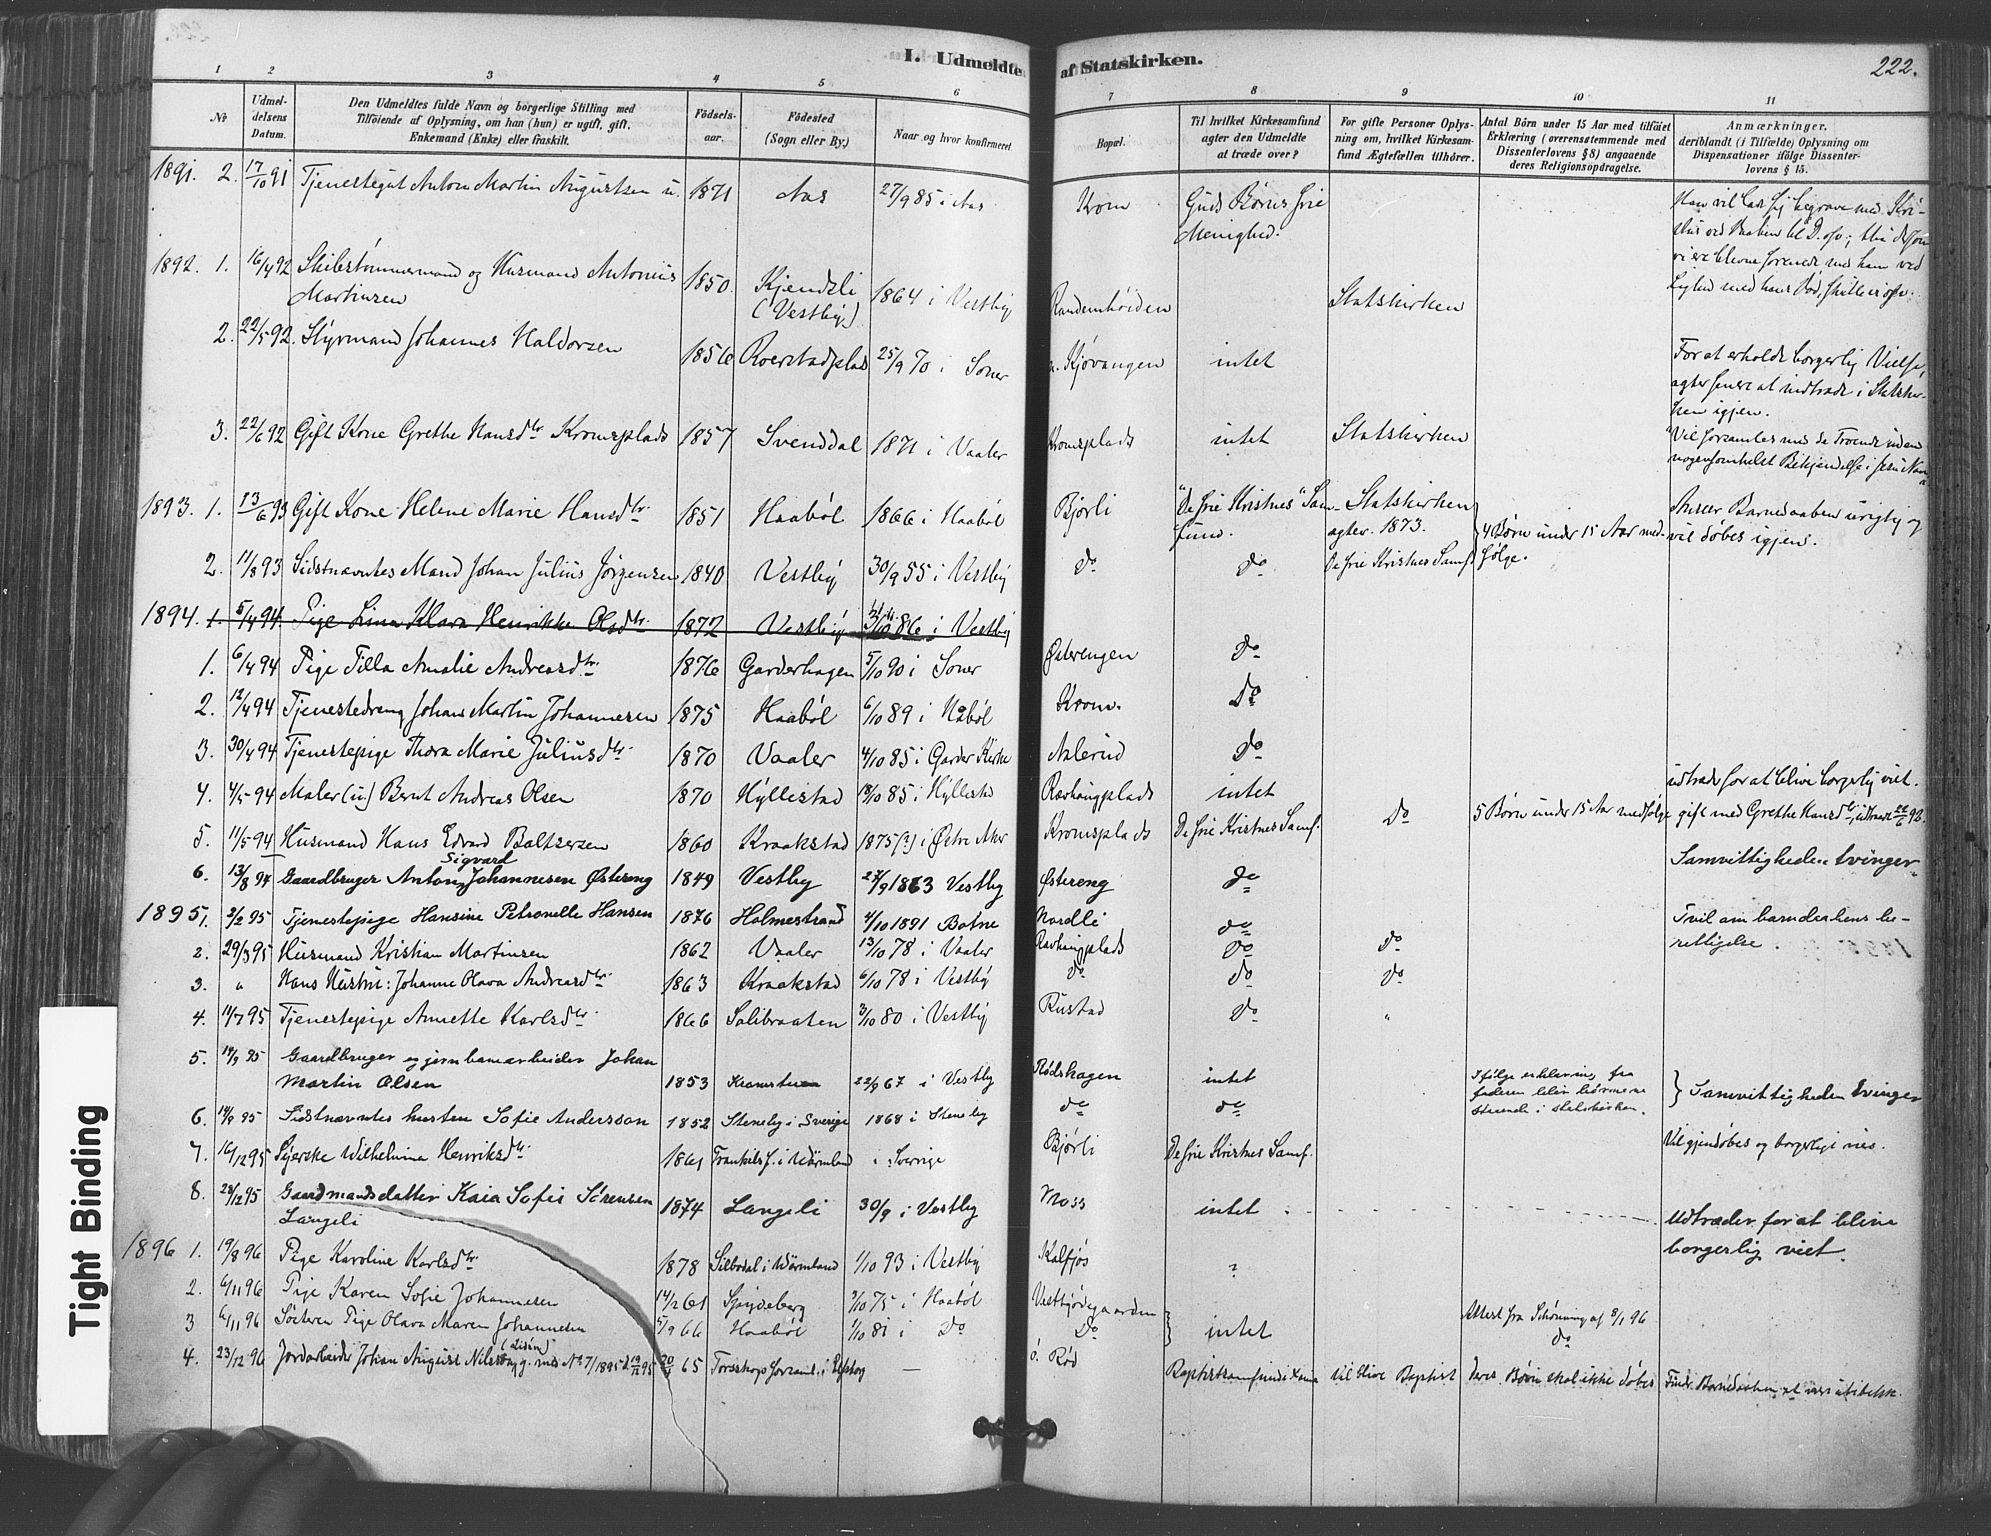 I. Udmeldte af Statskirken.
222.
1 2 3 4 5 6 7 8 9 10 11
No
Udmeldelsens Datum.
Den Udmeldtes fulde Navn og borgerlige Stilling med
Tilföiende af Oplysning, om han (hun) er ugift, gift,
Enkemand (Enke) eller fraskilt.
Födselsaar.
Födested
(Sogn eller By.)
Naar og hvor konfirmeret
Bopæl.
Til hvilket Kirkesamfund
agter den Udmeldte
at træde over?
For gifte Personer Oplysning
om, hvilket Kirkesamfund
Ægtefællen tilhörer.
Antal Börn under 15 Aar med tilföiet
Erklæring (overensstemmende med
Dissenterlovens § 8) angaaende
deres Religionsopdragelse.
Anmærkninger,
deriblandt (i Tilfælde) Oplysning om
Dispensationer ifölge Dissenterlovens
§ 15.
1891. 2. 17/10 91 Tjenestegut Anton Martin Augustsen u. 1871 Aas 27/9 85 i Aas Krom Guds Børns frie
Menighed.
1892. 1. 16/4 92 Skibstømmermand og Husmand Antonius 1850. Kjendsli 1864 i Vestby Statskirken
Martinsen (Vestby)
2. 22/5 92. Styrmand Johannes Haldorsen 1856 Roerstadplads 25/9 70 i Soner Kjøvangen intet For at erholde borgerlig Vielse,
agter senere at indtræde i Statskirken
igjen.
3. 22/6 92 Gift Kone Grethe Hansdtr Kromsplads 1857 Svenddal 1871 i Vaaler Kromsplads intet Statskirken Vil forsamles med de Troende uden
nogensomhelst Bekjendelse i Jesu Navn
1893. 1. 13/6 93 Gift Kone Helene Marie Hansdtr. 1851 Haabøl 1866 i Haabøl Bjørli "De frie Kristnes" Samfund. Statskirken
agter. 1873. 4 Børn under 15 Aar medfølge. Anser Barnedaaben urigtig og
vil døbes igjen.
2. 11/8 93 Sidstnævntes Mand Johan Julius Jørgensen 1840 Vestby 30/9 55 i Vestby do do De frie Kristnes Samf.
1894. 1. 5/4 94 Pige Lina Klara Henrikke Olsdtr. 1872 Vestby 3/10 86 i Vestby
1. 6/4 94 Pige Tilla Amalie Andreasdtr. 1876 Garderhagen 5/10 90 i Soner Østerengen do
2. 12/4 94 Tjenestedreng Johan Martin Johannesen 1875 Haabøl 6/10 89 i Håbøl Krom. Do
3. 30/4 94 Tjenestepige Thora Marie Juliusdtr. 1870 Vaaler 4/10 85 i Garder Kirke Aslerud do
4. 4/5 94 Maler (u) Bernt Andreas Olsen 1870 Hyllestad 18/10 85 i Hyllestad Ravhaugplads intet udtræder for at blive borgerlig viet.
5. 11/5 94 Husmand Hans Edvard Baltzersen 1860 Kraakstad 1875 (?) i Østre Aker Kromsplads De frie Kristnes Samf. Do 5 Børn under 15 Aar medfølge gift med Grethe Hansdtr, udtraadt 22/6 92.
6. 13/8 94 Gaardbruger Anton Sigvard Johannesen Østereng 1849 Vestby 27/9 1863 Vestby Østereng do Samvittigheden tvinger.
1895. 1. 3/2 95 Tjenestepige Hansine Petronelle Hansen 1876 Holmestrand 4/10 1891 Botne Nordli do Tvil om barnedaabens berettigelse.
2. 29/3 95 Husmand Kristian Martinsen 1862 Vaaler 13/10 78 i Vaaler Ravhaugplads do do
3. " Hans Hustru: Johanne Olava Andreasdtr. 1863 Kraakstad 6/10 78 i Vestby do do do
4. 14/7 95 Tjenestepige Annette Karlsdtr. 1866 Solibraaten 3/10 80 i Vestby Rustad do "
5. 14/9 95 Gaardbruger og jernbanearbeider Johan
Martin Olsen 1853 22/9 67 i Vestby Rødshagen intet Ifølge erklæring fra
faderen bliver børnene
staaende i statskirken. Samvittigheden tvinger
6. 14/9 95 Sidstnævntes hustru Sofie Andersson 1852 Steneby i Sverige 1868 i Steneby do do
7. 16/12 95 Syerske Wilhelmine Henriksdtr. 1861 i Wärmland i Sverige Bjørli De frie Kristnes Samf. Vil gjendøbes og borgerlige vies.
8. 28/12 95 Gaardmandsdatter Kaia Sofie Sörensen
Langeli 1874 Langeli 30/9 i Vestby Moss intet Udtræder for at blive
borgerlig viet.
1896 1. 19/8 96 Pige Karoline Karlsdtr. 1878 Silbodal i Wärmland 1/10 93 i Vestby Kalfjøs ?
2. 6/11 96 Pige Karen Sofie Johannesen 14/2 61 Spydeberg 3/10 75 i Haabøl intet Attest fra Schönning af 8/1 96
3 6/11 96 Søsteren Pige Olava Maren Johannesen 5/9 66 Haabøl 1/10 81 i Do Do do
4. 23/12 96 Jordarbeider Johan August Nilsson (Lidén) g. med No 7/1895 65 — ö. Rød Vil blive Baptist deres Børn skal ikke døbes
Tight Binding